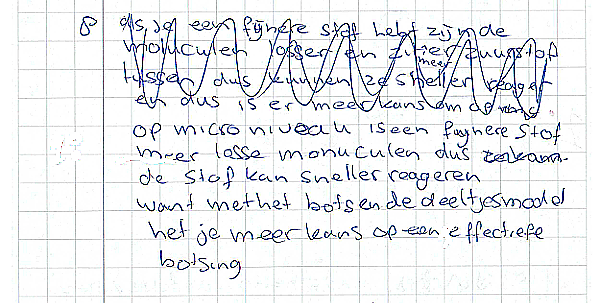 8 als je een fijnere stof hebt zijn de
moluculen losser en zit er zuurstof
tussen dus kunnen ze sneller reager
en dus is er meer kans om de
op micro niveau is een fijnere stof
meer losse monuculen dus
de stof kan sneller reageren
want met het botsende deeltjesmodel
het je meer kans op een effectiefe
botsing